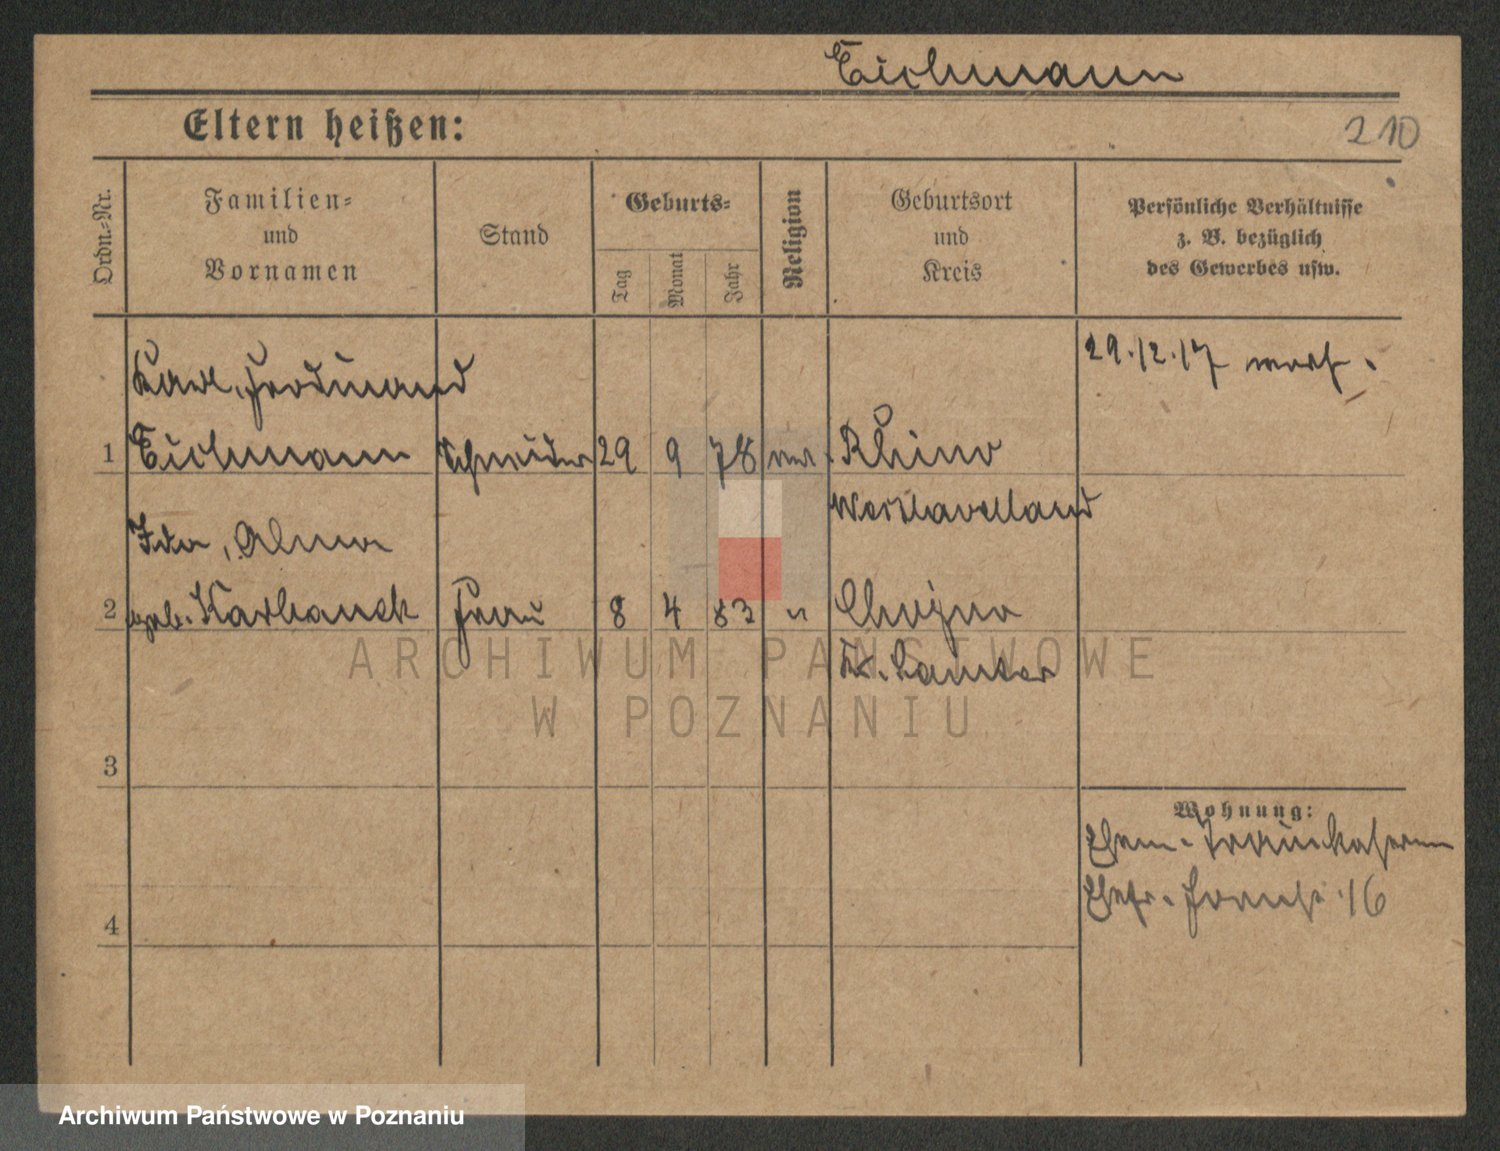 Eichmann
Eltern heißen:
210
Ordn.-Nr.
Familien-
und
Vornamen
Stand
Geburts-
Tag
Monat
Jahr
Religion
Geburtsort
und
Kreis
Persönliche Verhältnisse
z. B. bezüglich
des Gewerbes usw.
Karl, Ferdinand
29.12.17
1 Eichmann Schneider 29 9 78 Rhino
Westhavelland
Ida, Alma
2 geb. Karhausek Frau 8 4 83 " Chojno
Kr. Samter
3
Wohnung:
4
16
ARCHIWUM PAŃSTWOWE
W POZNANIU
Archiwum Państwowe w Poznaniu